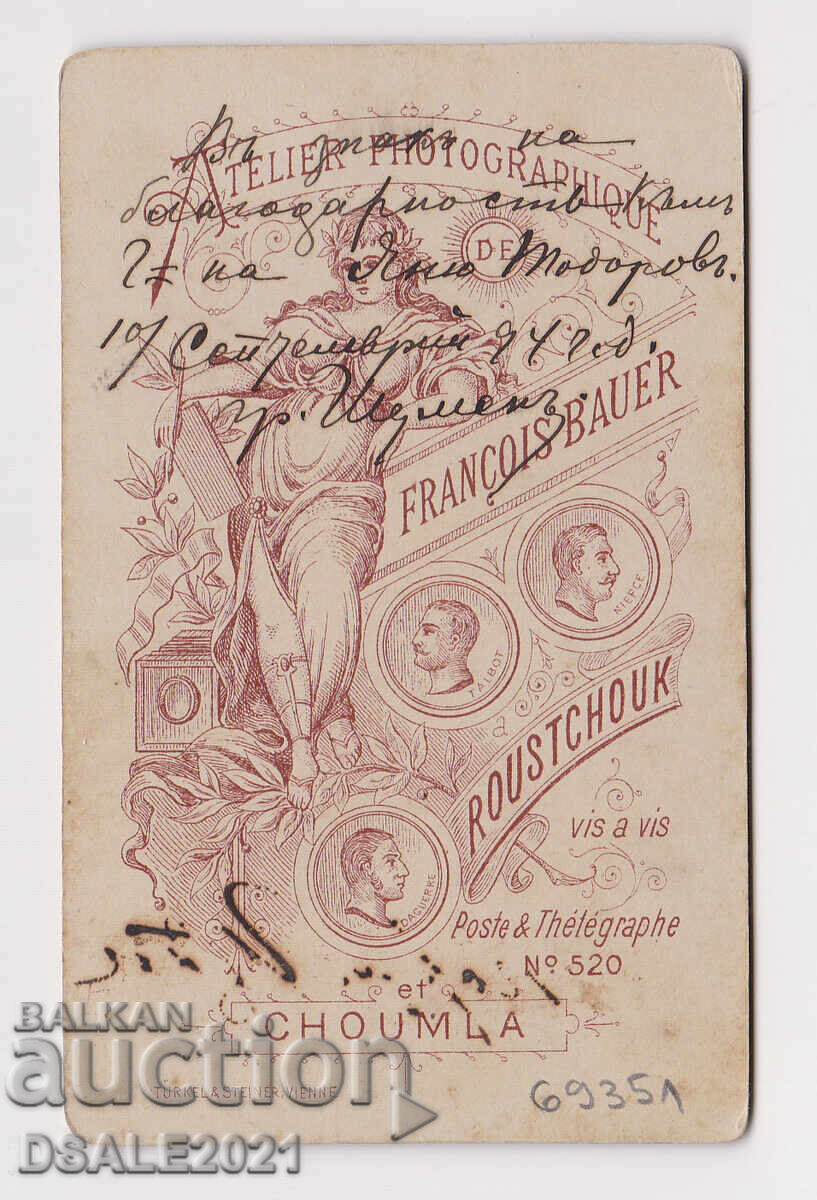 Въ знакъ на
благодарность къмъ
Г= на Яню Тодоровъ.
10/ Септемврий 94 год.
гр. Шуменъ.
ATELIER PHOTOGRAPHIQUE
DE
FRANÇOIS BAUER
NIEPCE
TALBOT
a
ROUSTCHOUK
vis a vis
DAGUERRE
Poste & Thélégraphe
No 520
et
CHOUMLA
TÜRKEL & STEINER, VIENNE
69351
BALKAN
auction
DSALE2021